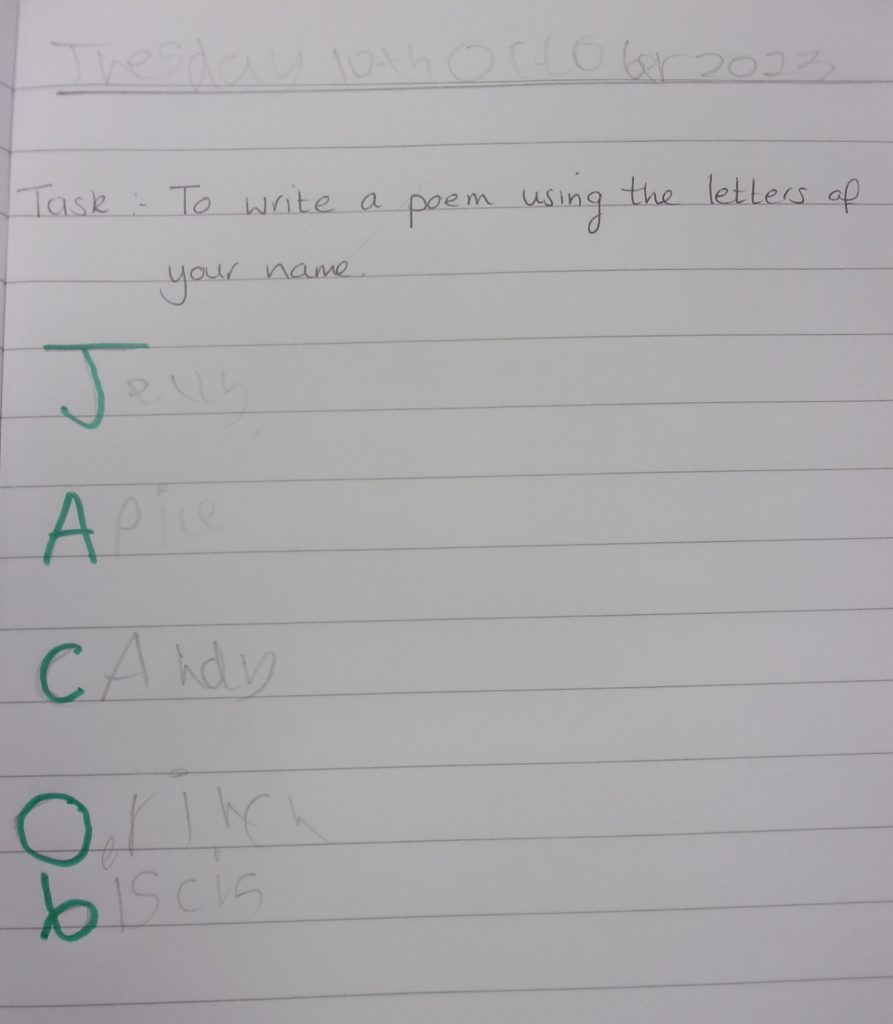 Tuesday 10th OctOber 2023
Task :- To write a poem using the letters of
your name.
Jelly
APice
CAndy
O.rinch
biscis